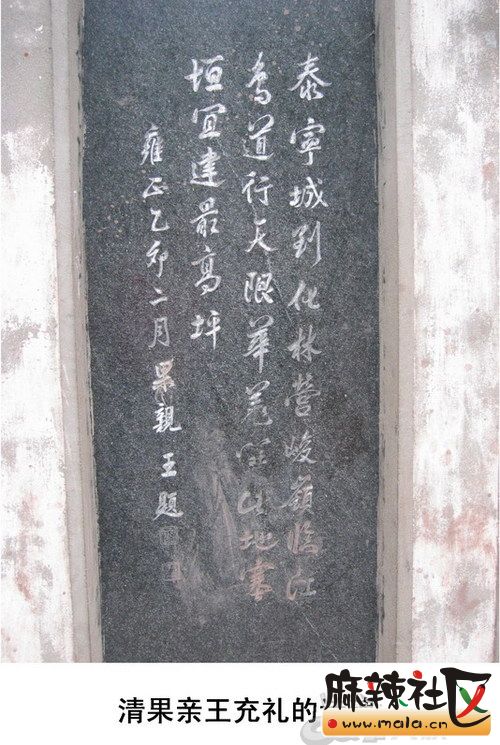 泰寧城到化林營峻嶺臨江
鳥道行天限華羌此地塞
垣宜建最高坪
雍正乙卯二月果親王題
清果亲王充礼的
麻辣社区
www.mala.cn